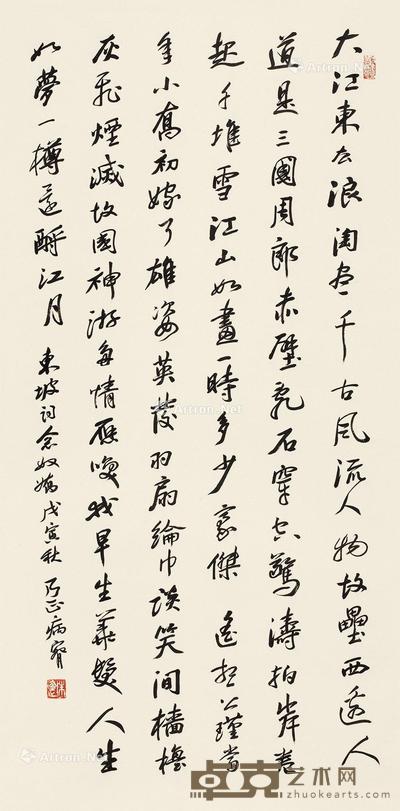 大江東去浪淘盡千古風流人物故壘西邊人
道是三國周郎赤壁亂石穿空驚濤拍岸卷
起千堆雪江山如畫一時多少豪傑遙想公瑾當
年小喬初嫁了雄姿英發羽扇綸巾談笑間檣櫓
灰飛煙滅故國神游多情應喚我早生華髮人生
如夢一樽還酹江月 東坡詞念奴嬌戊寅秋 乃正病
Artron.Net
卓克艺术网
zhuokearts.com